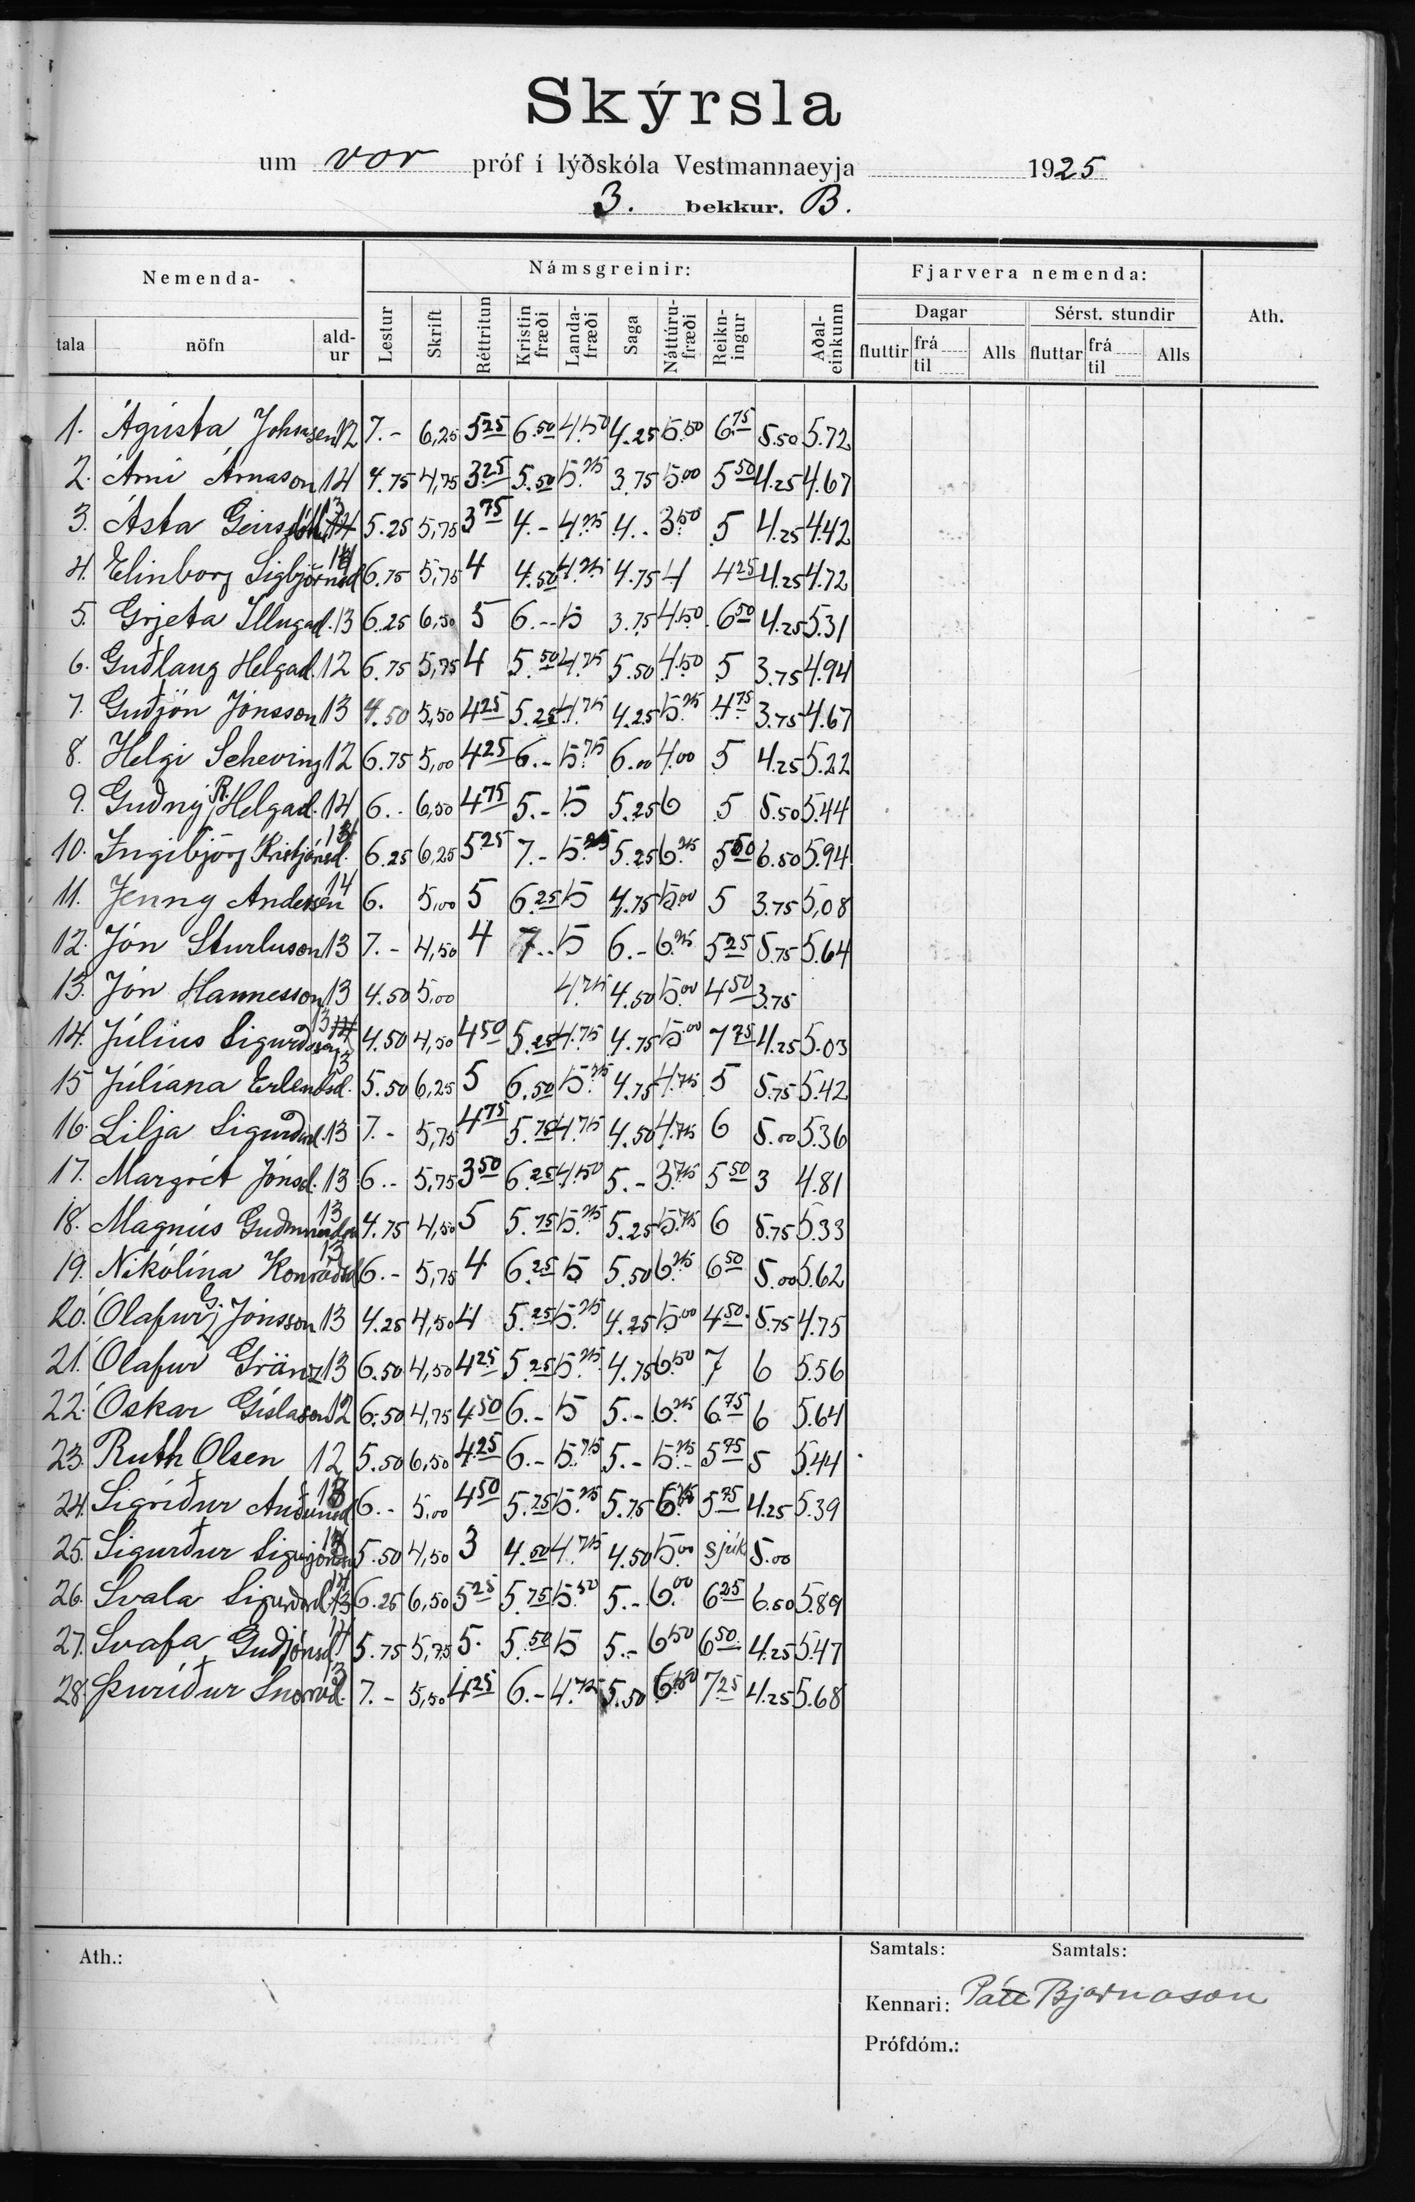 Skýrsla
um vor próf í lýðskóla Vestmannaeyja 1925
3. bekkur. B.
Nemenda- Námsgreinir: Fjarvera nemenda: Ath.
Dagar Sérst. stundir
tala nöfn ald-ur Lestur Skrift Réttritun Kristin fræði Landa-fræði Saga Náttúru-fræði Reikn-ingur Aðal-einkunn fluttir frá til Alls fluttar frá til Alls
1. Ágústa Johnsen 12 7.- 6,25 5 25 6.50 4.50 4.25 5.50 6.75 5.50 5.72
2. Árni Árnason 14 4.75 4,75 3 25 5.50 5.25 3.75 5.00 5 50 4.25 4.67
3. Ásta Geirsdóttir 13 5.25 5,75 3 75 4.- 4.25 4.- 3.50 5 4.25 4.42
4. Elinborg Sigbjörnsd 14 6.75 5,75 4 4.50 4.25 4.75 4 4 25 4.25 4.72
5. Grjeta Illugad. 13 6.25 6,50 5 6.-- 5 3.75 4.50 6 50 4.25 5.31
6. Guðlaug Helgad. 12 6.75 5,75 4 5.50 4.75 5.50 4.50 5 3.75 4.94
7. Guðjón Jónsson 13 4.50 5,50 4 25 5.25 4.75 4.25 5.25 4.75 3.75 4.67
8. Helgi Scheving 12 6.75 5,00 4 25 6.- 5.75 6.00 4.00 5 4.25 5.22
9. Guðný R. Helgad. 14 6.- 6,50 4 75 5.- 5 5.25 6 5 5.50 5.44
10. Ingibjörg Kristjánsd. 13 6.25 6,25 5 25 7.- 5.25 5.25 6.25 5 50 6.50 5.94
11. Jenny Andersen 14 6. 5,00 5 6.25 5 4.75 5.00 5 3.75 5,08
12. Jón Sturluson 13 7.- 4,50 4 7.- 5 6.- 6.25 5 25 5.75 5.64
13. Jón Hannesson 13 4.50 5,00 4.75 4.50 5.00 4 50 3.75
14. Júlíus Sigurðsson 13 4.50 4,50 4 50 5.25 4.75 4.75 5.00 7 75 4.25 5.03
15 Júlíana Erlendsd. 13 5.50 6,25 5 6.50 5.75 4.75 4.75 5 5.75 5.42
16. Lilja Sigurðard. 13 7.- 5,75 4 75 5.75 4.75 4.50 4.75 6 5.00 5.36
17. Margrét Jónsd. 13 6.- 5,75 3 50 6.25 4.50 5.- 3.75 5 50 3 4.81
18. Magnús Guðmundsson 13 4.75 4,50 5 5.75 5.25 5.25 5.75 6 5.75 5.33
19. Nikólína Konráðsd 13 6.- 5,75 4 6.25 5 5.50 6.25 6 50 5.00 5.62
20. Ólafur G. Jónsson 13 4.25 4,50 4 5.25 5.25 4.25 5.00 4 50 5.75 4.75
21. Ólafur Gränz 13 6.50 4,50 4 25 5.25 5.25 4.75 6.50 7 6 5.56
22. Óskar Gíslason 12 6.50 4,75 4 50 6.- 5 5.- 6.25 6.75 6 5.64
23. Ruth Olsen 12 5.50 6,50 4.25 6.- 5.75 5.- 5.25 5 75 5 5.44
24. Sigríður Auðunsd 13 6.- 5,00 4 50 5.75 5.25 5.75 5 75 4.25 5.39
25. Sigurður Sigurjónsson 5.50 4,50 3 4.50 4.75 4.50 5.00 sjúk 5.00
26. Svala Sigurðard. 14 6.25 6,50 5 25 5.75 5.50 5.- 6.00 6 25 6.50 5.89
27. Svafa Guðjónsd 14 5.75 5,75 5. 5.50 5 5.- 6.50 6 50 4.25 5.47
28. Þuríður Snorrad. 13 7.- 5,50 4 25 6.- 4.75 5.50 6.50 7 25 4.25 5.68
Ath.: Samtals: Samtals:
Kennari: Páll Bjarnason
Prófdóm.: